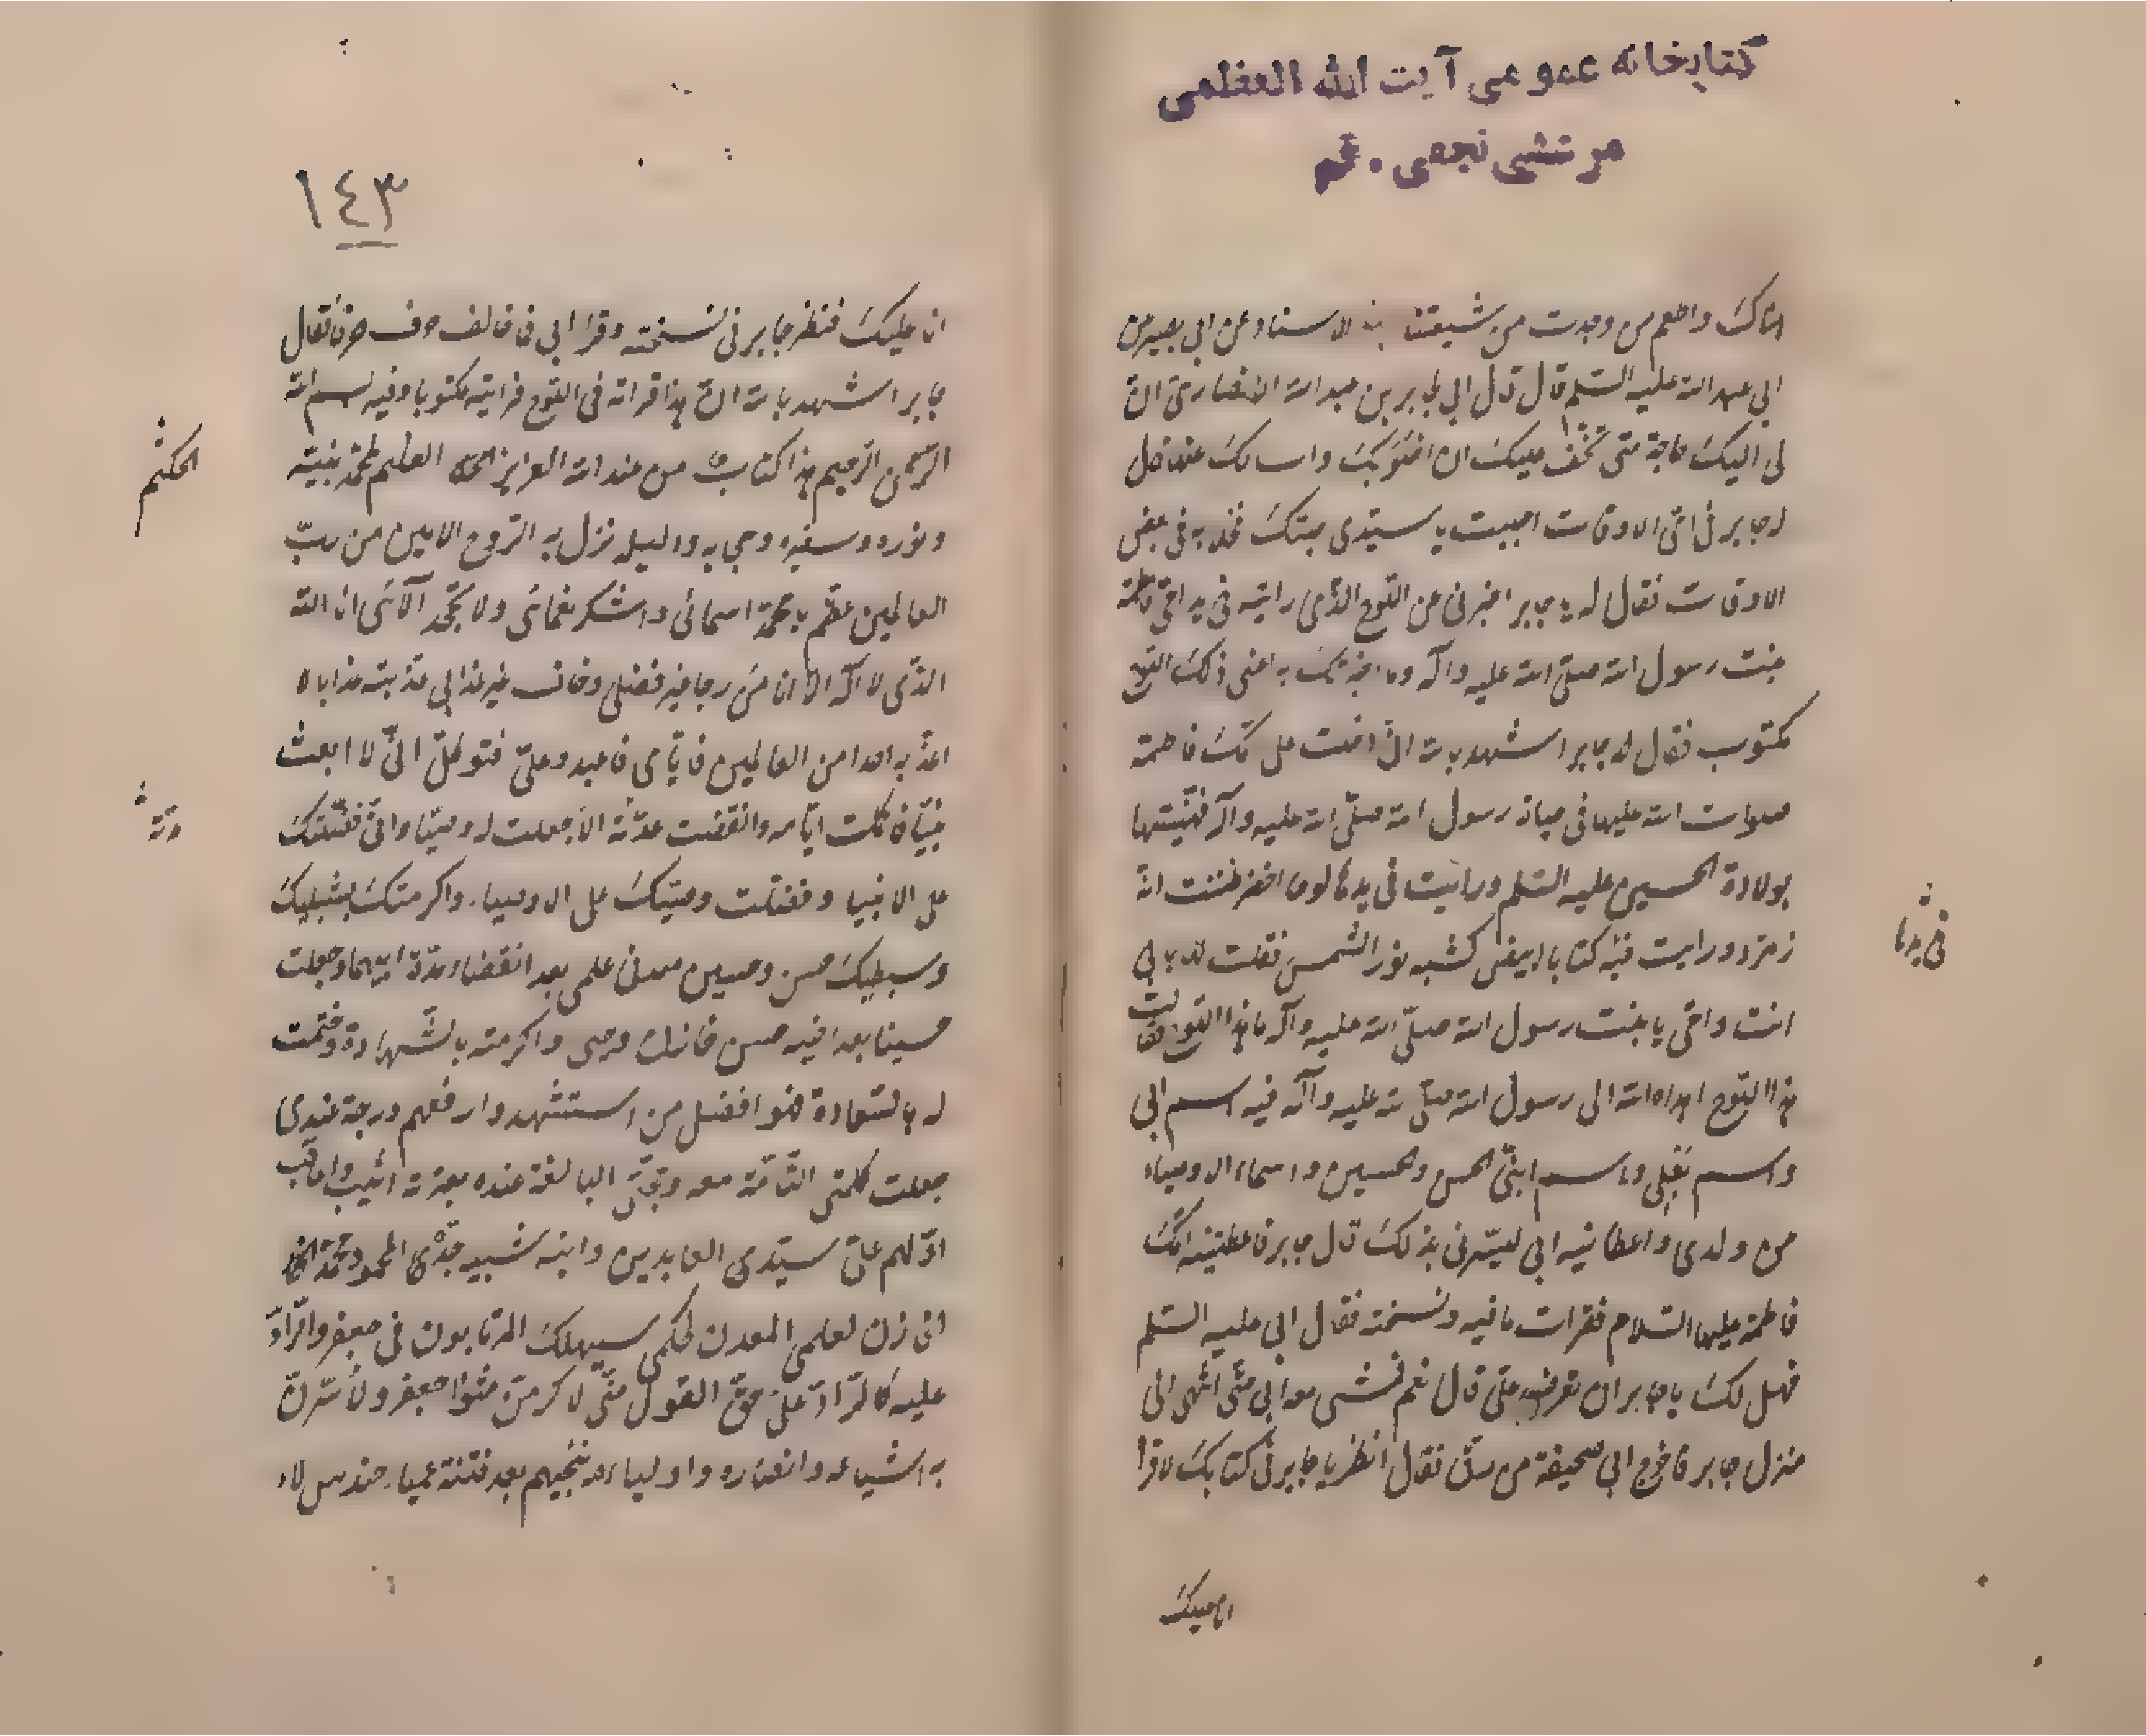 كتابخانه عمومى آيت الله العظمى
مرعشى نجفى . قم
اتاك واطعم من وجدت من شيعتنا الاسناد عن ابى بصير عن
ابى عبد الله عليه السلم قال قال ابى لجابر بن عبد الله الانصارى ان
لى اليك حاجة متى تخف عليك ان اخلو بك واسالك عنها قال
له جابر فى اى الاوقات احببت يا سيدى فخلا به فى بعض
الاوقات فقال له يا جابر اخبرنى عن اللوح الذى رايته فى يد امى فاطمة
بنت رسول الله صلى الله عليه واله وما اخبرتك به امى ذلك اللوح
مكتوب فقال له جابر اشهد بالله انى دخلت على امك فاطمة
صلوات الله عليها فى حياة رسول الله صلى الله عليه واله فهنيتها
بولادة الحسين عليه السلم ورايت فى يدها لوحا اخضر ظننت انه
زمرد ورايت فيه كتابا ابيض كشبه نور الشمس فقلت لها بابى
فى يدها
انت وامى يا بنت رسول الله صلى الله عليه واله ما هذا اللوح فقالت
هذا اللوح اهداه الله الى رسول الله صلى الله عليه واله فيه اسم ابى
واسم بعلى واسم ابنى الحسن والحسين واسماء الاوصياء
من ولدى واعطانيه ابى ليسرنى بذلك قال جابر فاعطتنيه امك
فاطمة عليها السلام فقرات ما فيه ونسخته فقال ابى عليه السلم
فهل لك يا جابر ان تعرضه على قال نعم فمشى معه ابى حتى انتهى الى
منزل جابر فاخرج ابى صحيفة من رق فقال انظر يا جابر فى كتابك لاقرا
انا عليك
١٤٣
انا عليك فنظر جابر فى نسخته وقرا ابى فما خالف حرف حرفا فقال
جابر اشهد بالله انى هكذا قراته فى اللوح فرايته مكتوبا وفيه بسم الله
الرحمن الرحيم هذا كتاب من عند الله العزيز العليم لمحمد نبيه
الحكيم
ونوره وسفيره وحجابه ودليله نزل به الروح الامين من رب
العالمين عظم يا محمد اسمائى واشكر نعمائى ولا تجحد آلائى انا الله
الذى لا اله الا انا من رجا غير فضلى وخاف غير عذابى عذبته عذابا لا
اعذبه احدا من العالمين فاياى فاعبد وعلى فتوكل انى لا ابعث
نبيا فاكملت ايامه وانقضت مدته الا جعلت له وصيا وانى فضلتك
مدته
على الانبياء وفضلت وصيك على الاوصياء واكرمتك بشبليك
وسبطيك حسن وحسين معدن علمى بعد انقضاء مدة ابيهما وجعلت
حسينا بعد اخيه حسن خازن وحيى واكرمته بالشهادة وختمت
له بالسعادة فهو افضل من استشهد وارفعهم درجة عندى
جعلت كلمتى التامة معه وحجتى البالغة عنده بعترته اثيب واعاقب
اولهم على سيدى العابدين وابنه شبيه جده المحمود محمد
لعلمى المعدن لحكمى سيهلك المرتابون فى جعفر والراد
عليه كالراد على حق القول منى لاكرمن مثوا جعفر ولاسرنه
باشياعه وانصاره واوليائه بعد فتنة عمياء حندس لا